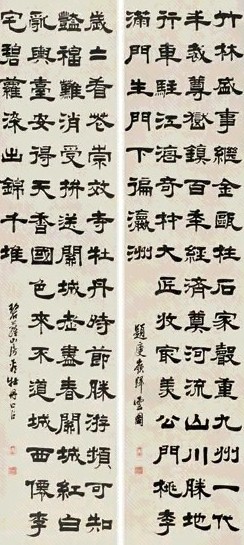 竹林盛事繼金甌柱石家聲重九州一代
丰裁尊嶽鎮百年經濟奠河流山川勝地
行車駐江海奇材大匠收最美公門桃李
滿門生門下徧瀛洲
題
圖
歲二看花崇效寺牡丹時節勝游頻可知
豔福難消受拚送闌城盡春闌城紅白
亂輿臺安得天香國色來不道城西李
宅碧蘿深出錦千堆
碧蘿山房看牡丹口占